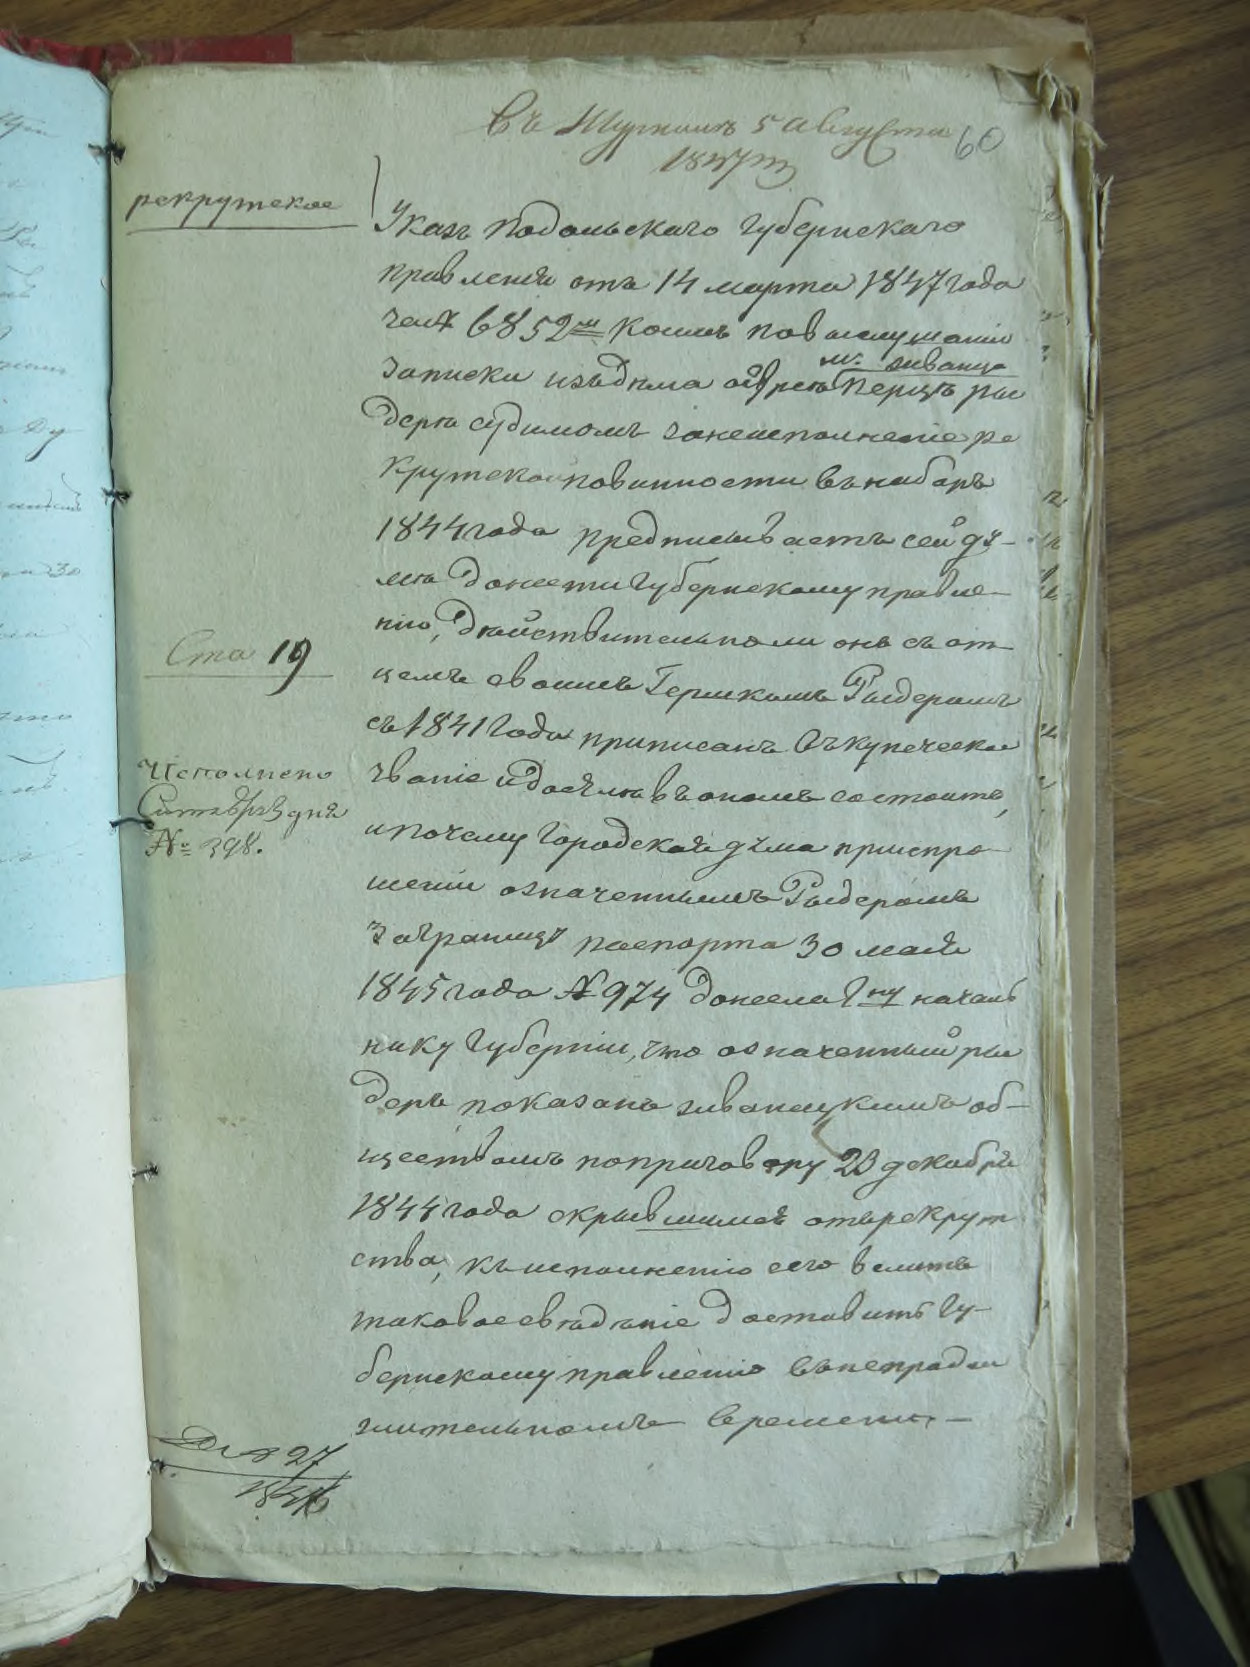 Въ Журналъ 5 августа 60
1847 г
рекрутское
Указъ Подольскаго Губернскаго
правленія отъ 14 марта 1847 года
за № 6852м коимъ по выслушаніи
м. жванца
записки изъ дѣла о еврѣѣ Перецѣ Ры
дерѣ судимомъ за неисполненіе ре
крутской повинности въ наборъ
1844 года предписываетъ сей ду-
мѣ донести Губернскому правле-
нію, дѣйствительно ли онъ съ от-
цемъ своимъ Гершкомъ Рыдеромъ
съ 1841 года приписанъ въ купеческое
званіе и досѣлѣ въ ономъ состоитъ,
и почему Городская дума при испро-
шеніи означеннымъ Рыдеромъ
заграницу паспорта 30 мая
1845 года № 974 донесла Гну началь
нику Губерніи, что означенный Ры
деръ показанъ жванецкимъ об-
ществомъ по приговору 23 декабря
1844 года скрывшимся отъ рекрут
ства, къ исполненію сего велитъ
таковое свѣдѣніе доставить Гу-
бернскому правленію въ непродол
жительномъ времени. —
Ста 19
Исполнено
Сентября 3 дня
№ 398.
Дѣло 27
1846